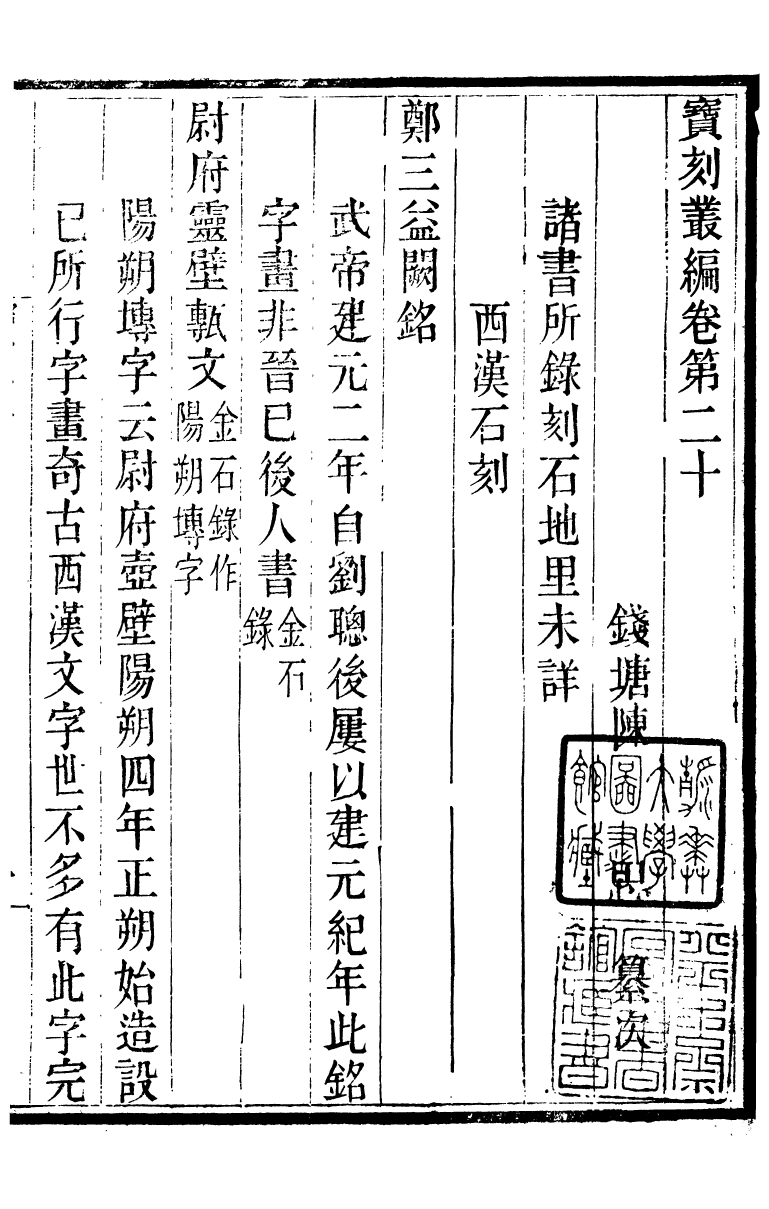 寶刻叢編卷第二十
錢塘陳 纂次
諸書所錄刻石地里未詳
西漢石刻
鄭三益闕銘
武帝建元二年自劉聰後屢以建元紀年此銘
字畫非晉已後人書金石
錄
尉府靈壁甎文金石錄作
陽朔塼字
陽朔塼字云尉府壺壁陽朔四年正朔始造設
已所行字畫奇古西漢文字世不多有此字完